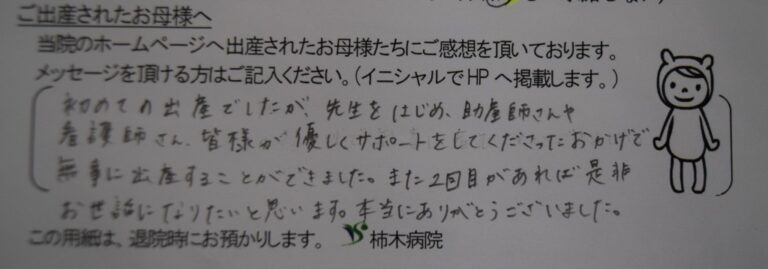 ご出産されたお母様へ
当院のホームページへ出産されたお母様たちにご感想を頂いております。
メッセージを頂ける方はご記入ください。(イニシャルでHPへ掲載します。)
初めての出産でしたが、先生をはじめ、助産師さんや
看護師さん、皆様が優しくサポートをしてくださったおかげで
無事に出産することができました。また2回目があれば是非
お世話になりたいと思います。本当にありがとうございました。
この用紙は、退院時にお預かりします。 柿木病院